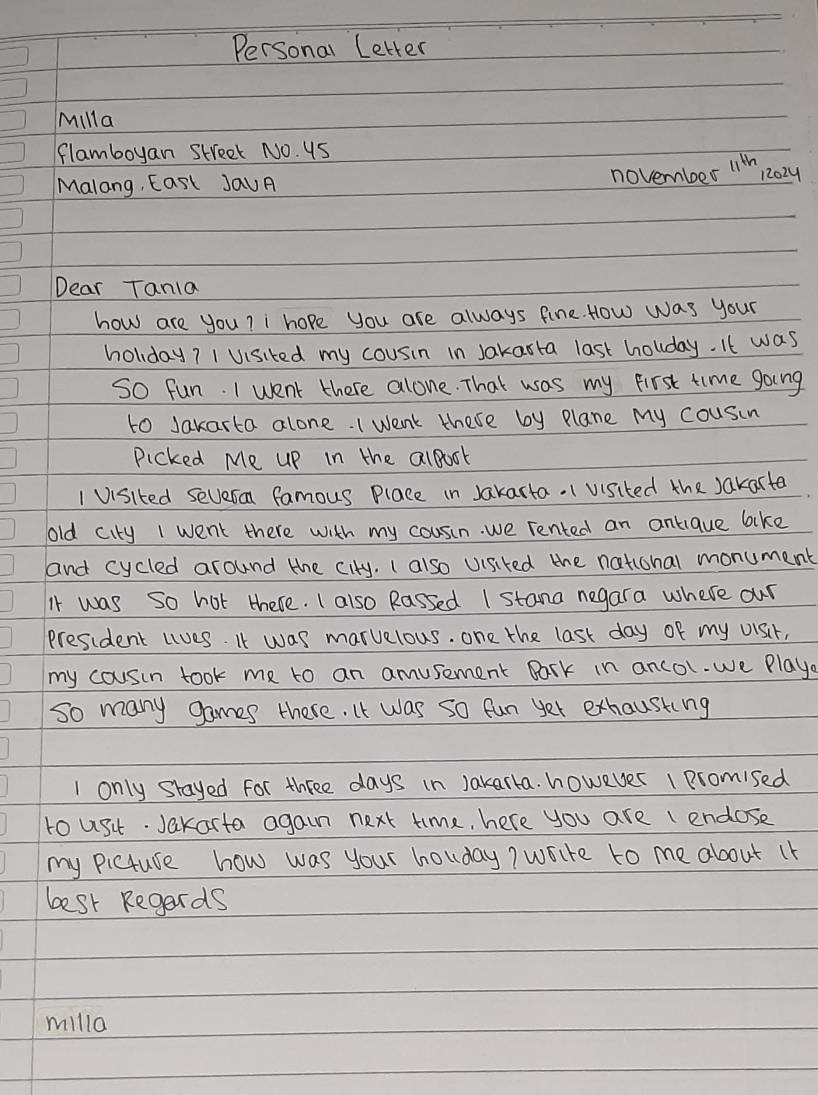 Personal Letter
Milla
flamboyan Street No. 45
Malang, East Java
november 11th, 2024
Dear Tania
how are you? i hope you are always fine. How was your
holiday? I visited my cousin in Jakarta last holiday. It was
so fun. I went there alone. That was my first time going
to Jakarta alone. I went there by plane My cousin
Picked Me up in the aiport
I visited several famous place in Jakarta. I visited the Jakarta
old city I went there with my cousin. we rented an antique bike
and cycled around the city. I also visited the national monument
it was so hot there. I also Passed Istana negara where our
president lives. It was marvelous. one the last day of my visit,
my cousin took me to an amusement park in ancol. we playe
so many games there. it was so fun yet exhausting
I only stayed for three days in Jakarta. however I promised
to visit. Jakarta again next time, here you are I enclose
my picture how was your holiday? write to me about it
best Regards
milla